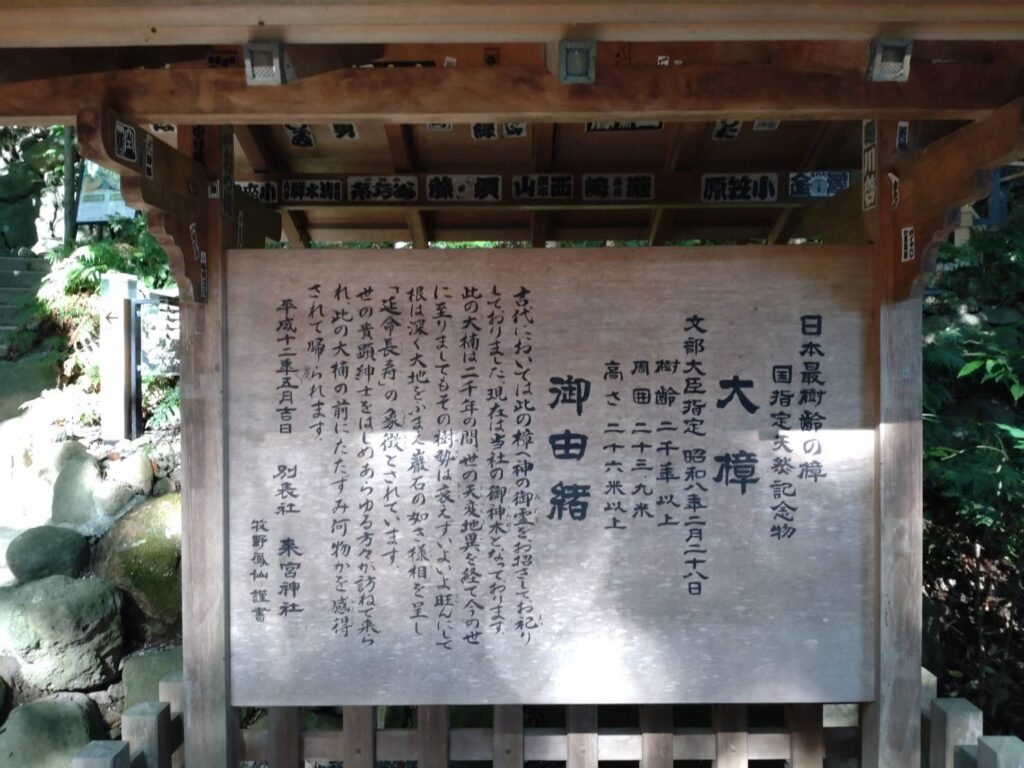 日本最樹齢の樟
国指定天然記念物
大樟
文部大臣指定 昭和八年二月二十八日
樹齢 二千年以上
周囲 二十三、九米
高さ 二十六米以上
御由緒
古代においては此の樟へ神の御霊をお招きしてお祀り
しておりました 現在は当社の御神木となっております
此の大楠は二千年の間 世の天変地異を経て今の世
に至りましてもその樹勢は衰えず、いよいよ旺んにして
根は深く大地をふまえ巌石の如き様相を呈し
「延命長寿」の象徴とされています
世の貴顕紳士をはじめあらゆる方々が訪ねて来ら
れ、此の大楠の前にたたずみ何物かを感得
されて帰られます
平成十二年五月吉日
別表社 来宮神社
牧野鳳仙 謹書
小笠原
須藤
西山